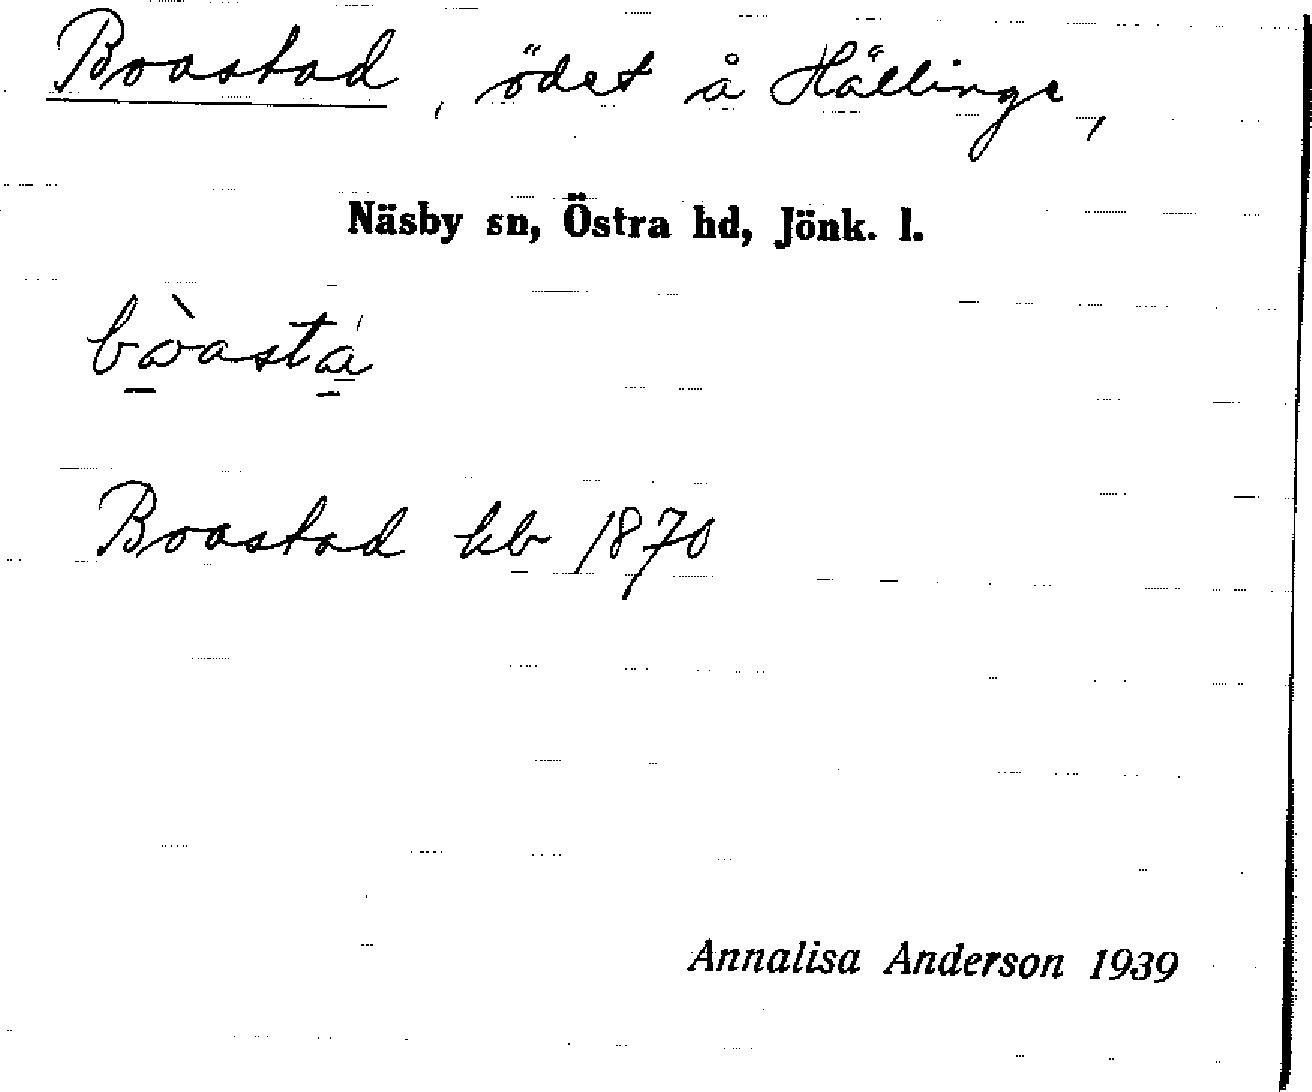 Boastad, ödet å Hällinge,
Näsby sn, Östra hd, Jönk. l.
Boastad kb 1870
Annalisa Anderson 1939